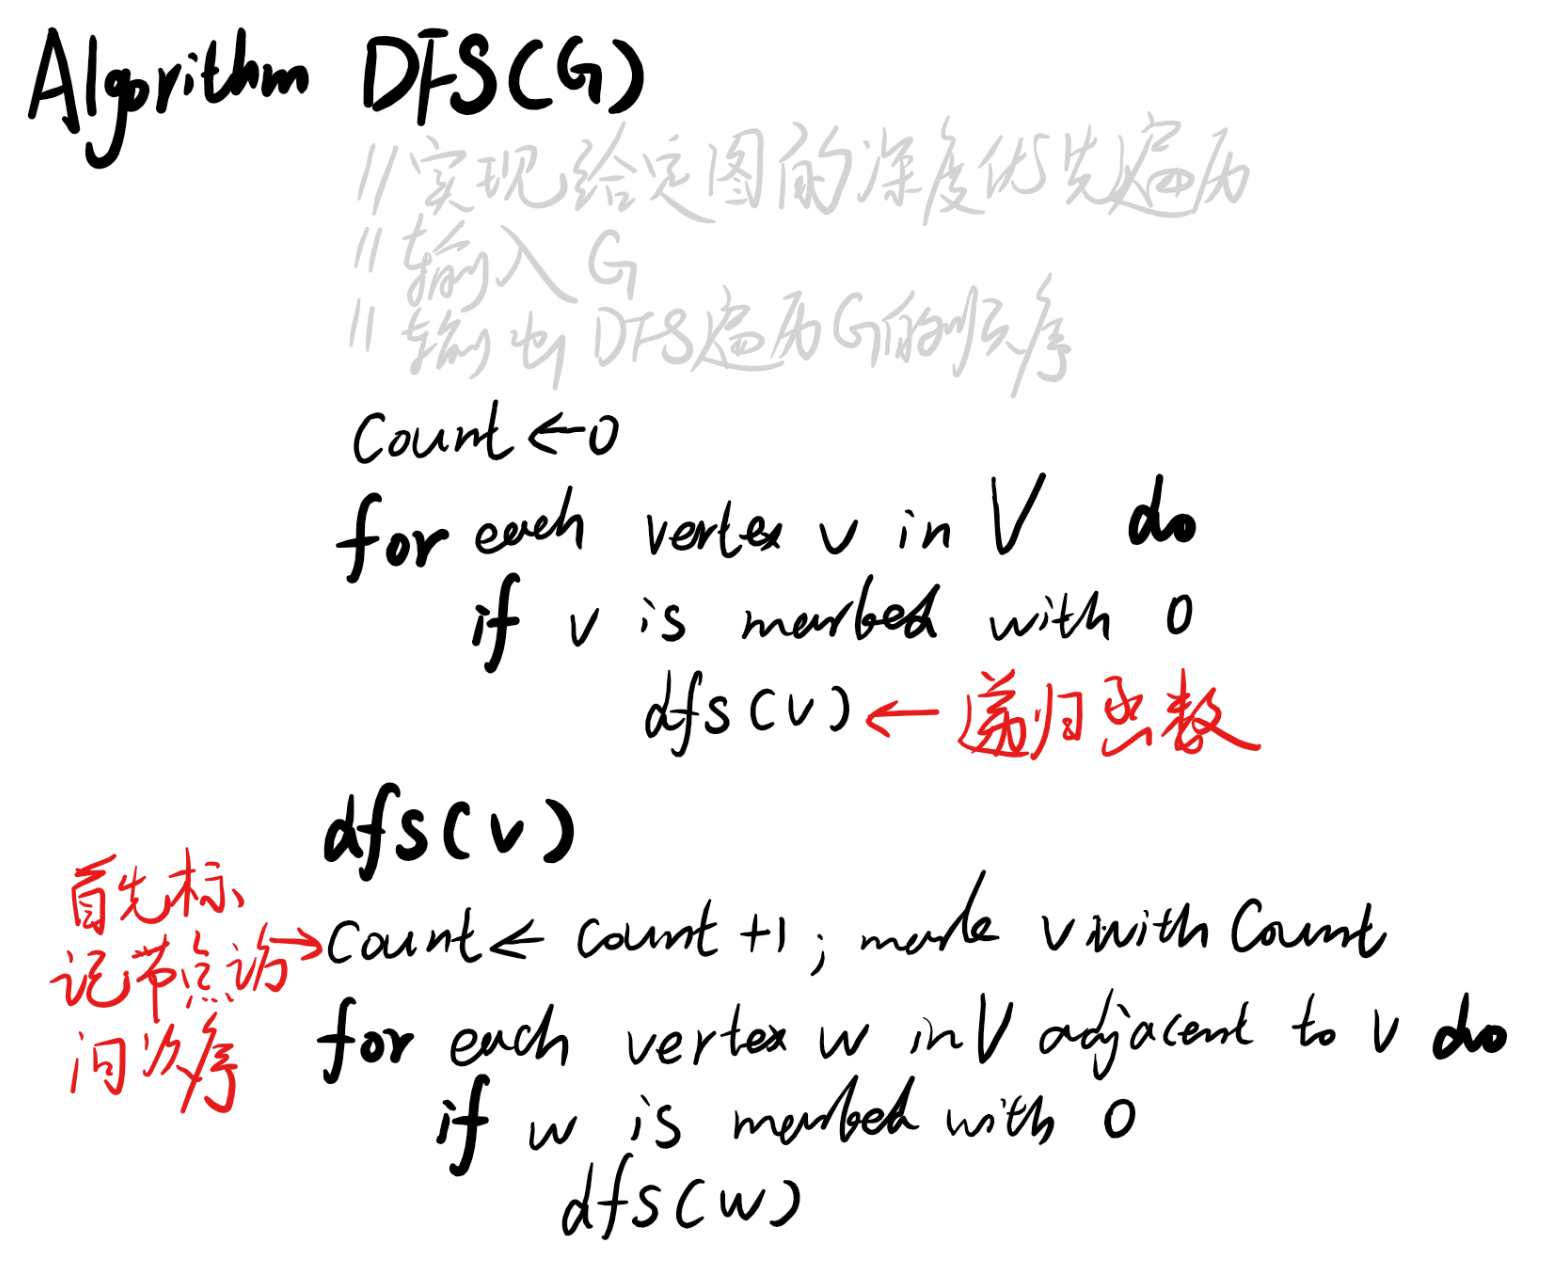 Algorithm DFS(G)
//实现给定图的深度优先遍历
//输入G
//输出DFS遍历G的顺序
Count←0
for each vertex v in V do
if v is marked with 0
dfs(v) ← 递归函数
dfs(v)
首先标
记节点访
问次序
→ Count ← count +1 ; mark v with Count
for each vertex w in V adjacent to v do
if w is marked with 0
dfs(w)